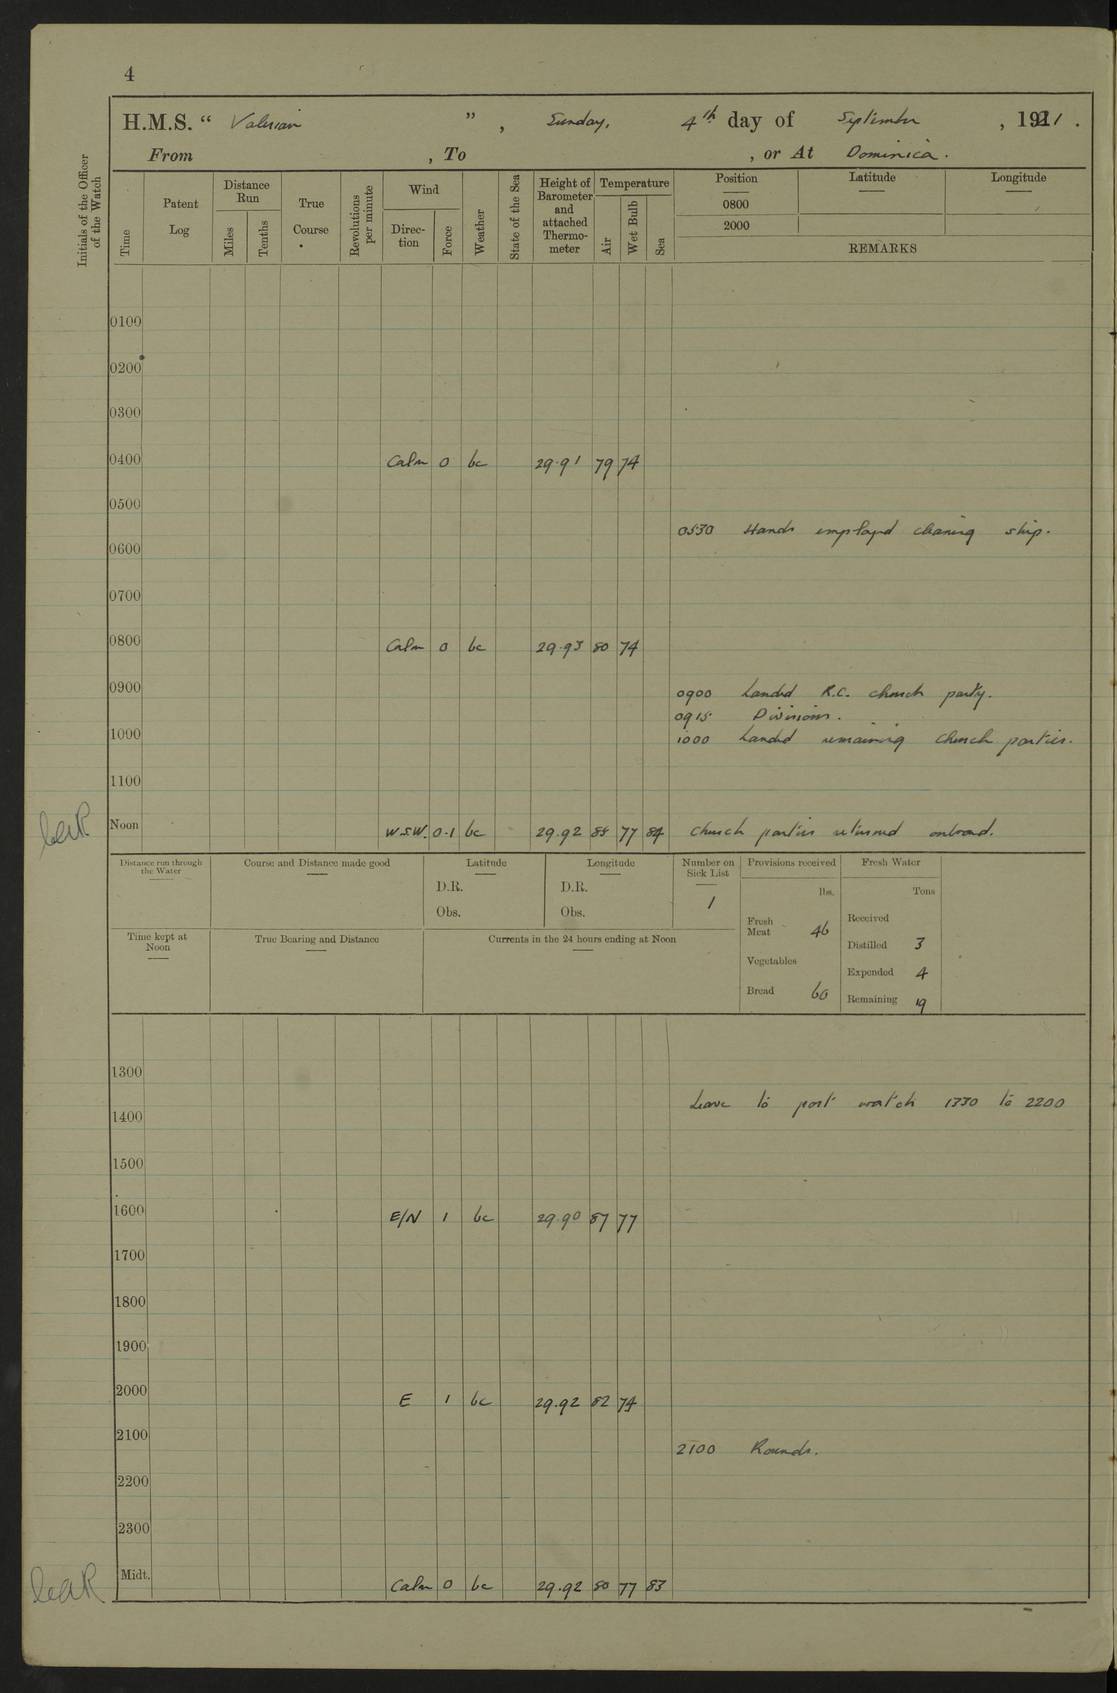 4
H.M.S. “ Valerian ” , Sunday, 4th day of September , 1921 .
From , To , or At Dominica .
Initials of the Officer of the Watch
Time
Patent Log
Distance Run
Miles
Tenths
True Course
Revolutions per minute
Wind
Direc-tion
Force
Weather
State of the Sea
Height of Barometer and attached Thermo-meter
Temperature
Air
Wet Bulb
Sea
Position Latitude Longitude
0800
2000
REMARKS
0100
0200
0300
0400 Calm 0 bc 29.91 79 74
0500
0530 Hands employed cleaning ship.
0600
0700
0800 Calm 0 bc 29.93 80 74
0900
0900 Landed R.C. church party.
0915 Divisions.
1000
1000 Landed remaining church parties.
1100
Noon W.S.W. 0-1 bc 29.92 85 77 84 Church parties returned onboard.
Distance run through the Water
Course and Distance made good
Latitude
D.R.
Obs.
Longitude
D.R.
Obs.
Number on Sick List
1
Provisions received
lbs.
Fresh Meat 46
Vegetables
Bread 60
Fresh Water
Tons
Received
Distilled 3
Expended 4
Remaining 19
Time kept at Noon
True Bearing and Distance
Currents in the 24 hours ending at Noon
1300
Leave to port watch 1330 to 2200
1400
1500
1600 E/N 1 bc 29.90 87 77
1700
1800
1900
2000 E 1 bc 29.92 82 74
2100
2100 Rounds.
2200
2300
Midt. Calm 0 bc 29.92 80 77 83